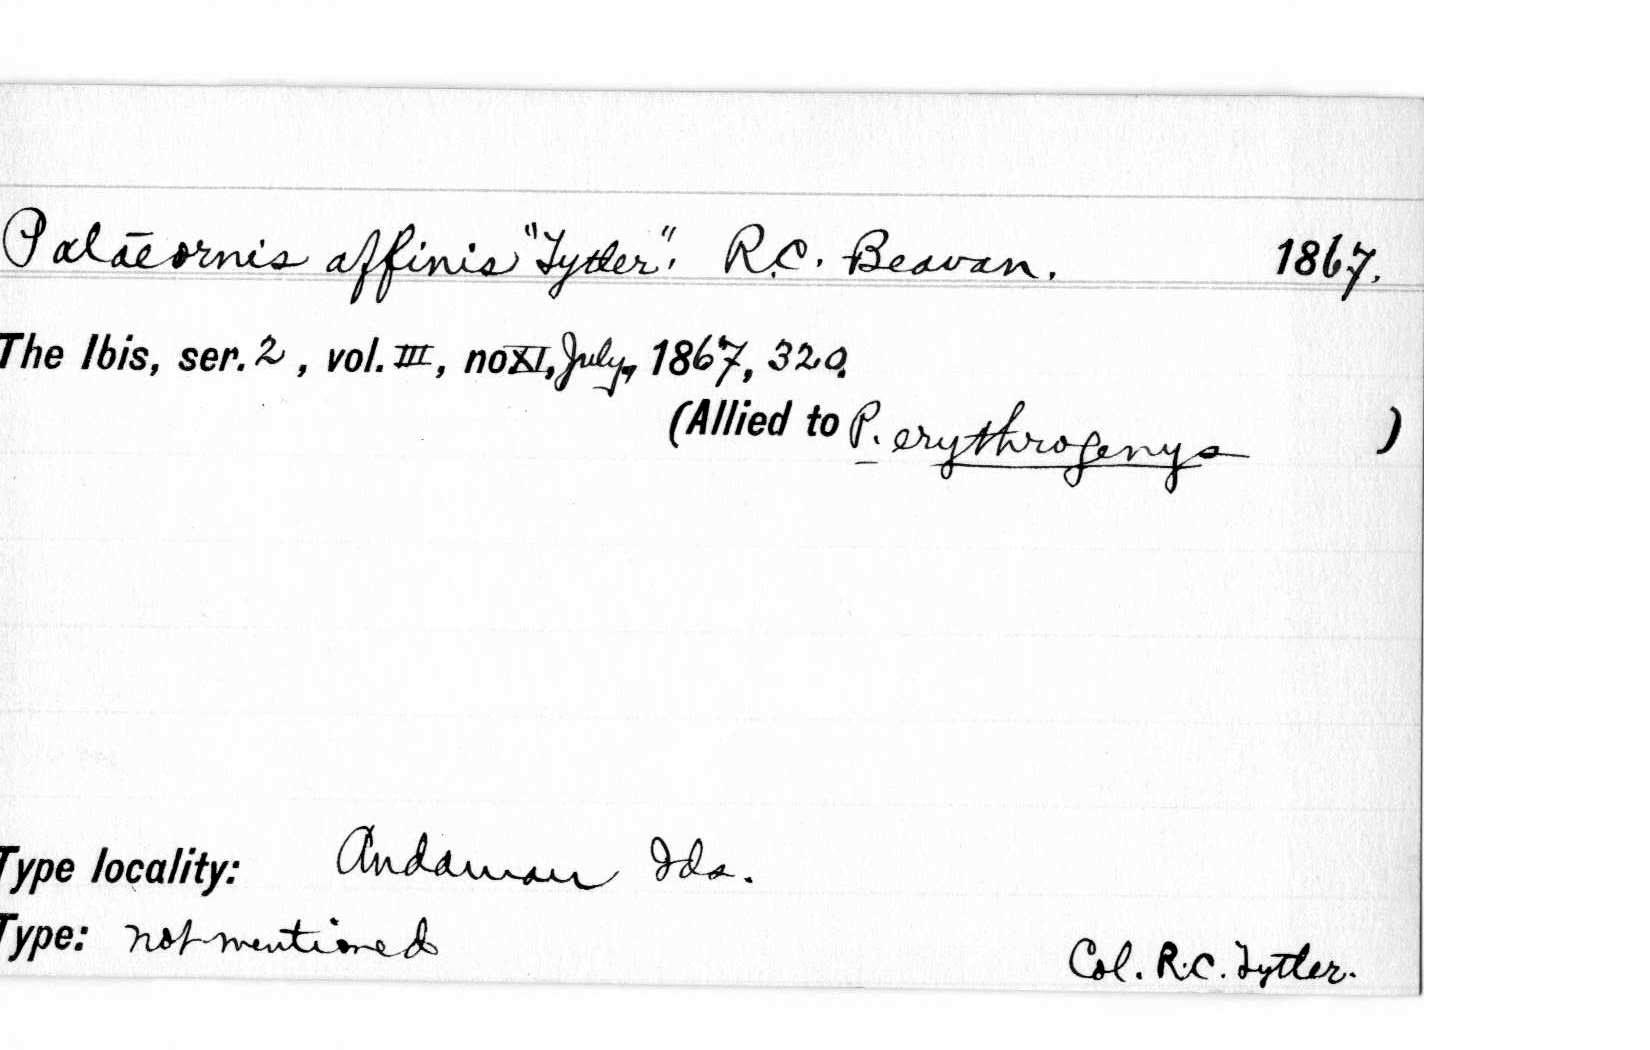 Palaeornis affinis "Tytler". R.C. Beavan. 1867.
The Ibis, ser. 2, vol. III, no XI, July, 1867, 320.
(Allied to P. erythrogenys )
Type locality: Andaman Ids.
Type: not mentioned
Col. R.C. Tytler.